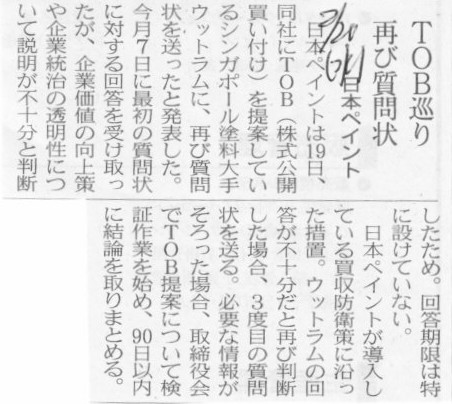 TOB巡り
再び質問状
日本ペイント
3/20
日本ペイントは19日、
同社にTOB（株式公開
買い付け）を提案してい
るシンガポール塗料大手
ウットラムに、再び質問
状を送ったと発表した。
今月7日に最初の質問状
に対する回答を受け取っ
たが、企業価値の向上策
や企業統治の透明性につ
いて説明が不十分と判断
したため。回答期限は特
に設けていない。
日本ペイントが導入し
ている買収防衛策に沿っ
た措置。ウットラムの回
答が不十分だと再び判断
した場合、3度目の質問
状を送る。必要な情報が
そろった場合、取締役会
でTOB提案について検
証作業を始め、90日以内
に結論を取りまとめる。